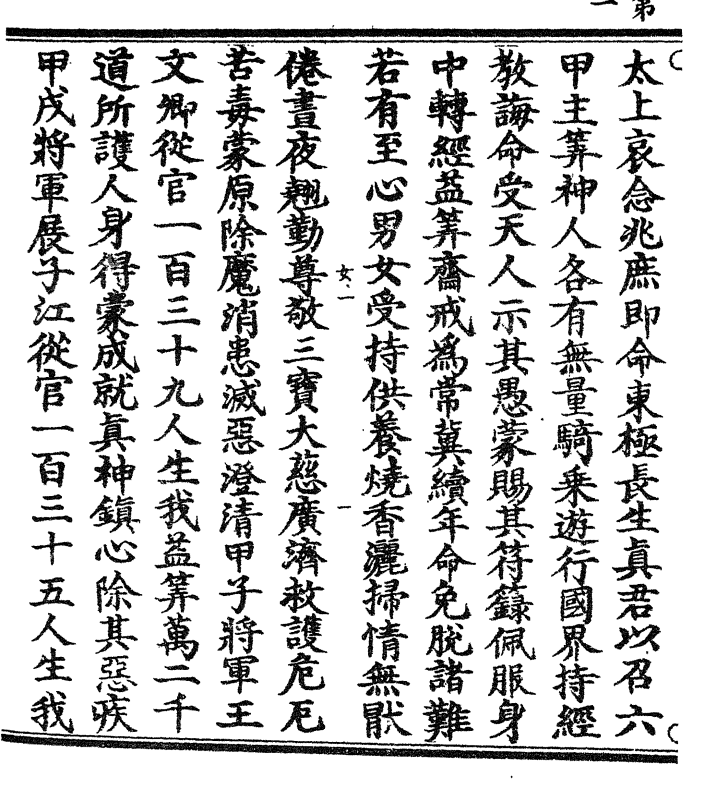 第一
太上哀念兆庶即命東極長生眞君以召六
甲主筭神人各有無量騎乗遊行國界持經
教誨命受天人示其愚蒙賜其符籙佩服身
中轉經益筭齋戒為常冀續年命免脫諸難
若有至心男女受持供養燒香灑掃情無猒
女一
一
倦晝夜翹勤尊敬三寶大慈廣濟救護危厄
苦毒蒙原除魔消患滅惡澄清甲子將軍王
文卿從官一百三十九人生我益筭萬二千
道所護人身得蒙成就眞神鎮心除其惡疾
甲戌將軍展子江從官一百三十五人生我